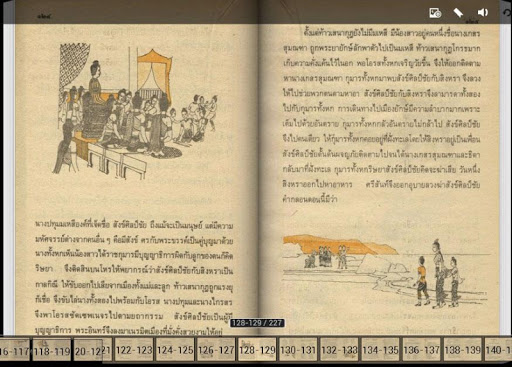 ๑๒๘
นางปทุมมเหลีองค์ที่เจ็ดชื่อ สังข์ศิลป์ชัย ถึงแม้จะเป็นมนุษย์ แต่มีความ
มหัศจรรย์ต่างจากคนอื่น ๆ คือมีสังข์ ศรกับพระขรรค์เป็นคู่บุญมาด้วย
นางทั้งหกเห็นน้องสาวได้ราชกุมารมีบุญญาธิการผิดกับลูกของตนก็คิด
ริษยา จึงติดสินบนโหรให้พยากรณ์ว่าสังข์ศิลป์ชัยกับสิงหราเป็น
กาลกิณี ให้ขับออกไปเสียจากเมืองทั้งแม่และลูก ท้าวเสนากุฏแรงยุ
ก็เชื่อ จึงขับไล่นางทั้งสองไปพร้อมกับโอรส นางปทุมและนางไกรสร
จึงพาโอรสซัดเซพเนจรไปตามยถากรรม สังข์ศิลป์ชัยเป็นผู้มี
บุญญาธิการ พระอินทร์จึงลงมาเนรมิตเมืองที่มั่งคั่งสวยงามให้อยู่
๑๒๙
ตั้งแต่ท้าวเสนากุฏยังไม่มีมเหลี มีน้องสาวอยู่คนหนึ่งชื่อนางเกสร
สุมณฑา ถูกพระยายักษ์ลักพาตัวไปเป็นมเหลี ท้าวเสนากุฏโกรธมาก
เก็บความคั่งแค้นไว้ในอก พอโอรสทั้งหกเจริญวัยขึ้น จึงให้ออกติดตาม
หานางเกสรสุมณฑา กุมารทั้งหกมาพบสังข์ศิลป์ชัยกับสิงหรา จึงลวง
ให้ไปช่วยพวกตนตามหาอา สังข์ศิลป์ชัยกับสิงหราจึงลามารดาทั้งสอง
ไปกับกุมารทั้งหก การเดินทางไปเมืองยักษ์มีความลำบากมากเพราะ
เต็มไปด้วยอันตราย กุมารทั้งหกกลัวอันตรายไม่กล้าไป สังข์ศิลป์ชัย
จึงไปคนเดียว ให้กุมารทั้งหกคอยอยู่ที่ฝั่งทะเลโดยให้สิงหราอยู่เป็นเพื่อน
สังข์ศิลป์ชัยดั้นด้นผจญภัยติดตามไปจนได้นางเกสรสุมณฑาและธิดา
กลับมาที่ฝั่งทะเล กุมารทั้งหกริษยาสังข์ศิลป์ชัยคิดจะฆ่าเสีย วันหนึ่ง
สิงหราออกไปหาอาหาร ศรีสันท์จึงออกอุบายลวงฆ่าสังข์ศิลป์ชัย
คำกลอนตอนนี้มีว่า
128-129 / 227
16-117 118-119 20-121 122-123 124-125 126-127 128-129 130-131 132-133 134-135 136-137 138-139 140-1